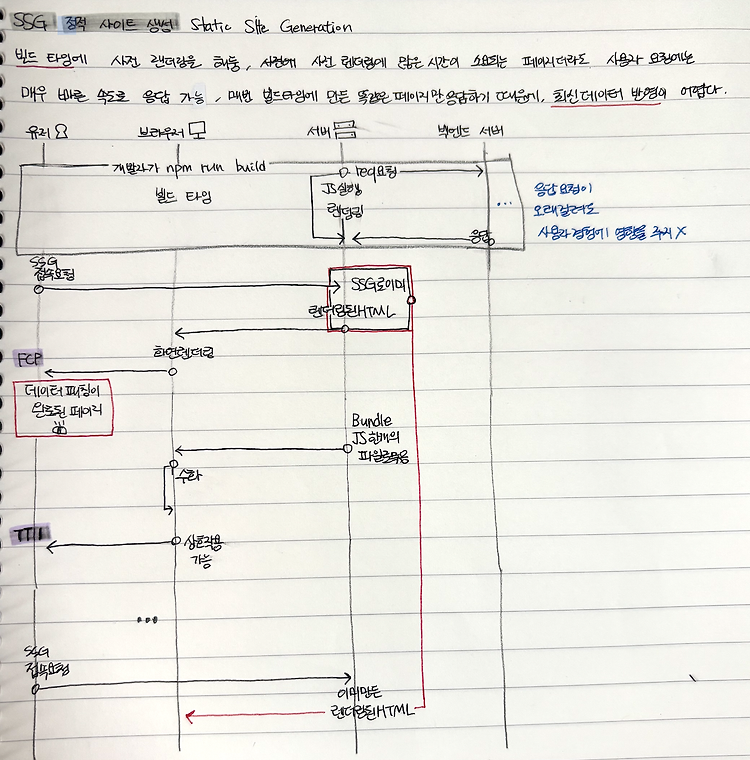 SSG 정적 사이트 생성 Static Site Generation
빌드 타임에 사전 렌더링을 해둠, 사전에 사전 렌더링에 많은 시간이 소요되는 페이지더라도 사용자 요청에는
매우 빠른 속도로 응답 가능, 매번 빌드타임에 만든 똑같은 페이지만 응답하기 때문에, 최신 데이터 반영이 어렵다.
유저 브라우저 서버 백엔드 서버
개발자가 npm run build
빌드 타임
req요청
JS실행
렌더링
응답
...
응답 요청이
오래걸려도
사용자 경험에 영향을 주지 X
SSG
접속요청
SSG로 이미
렌더링된HTML
화면렌더링
FCP
데이터 패칭이
완료된 페이지
Bundle
JS 한개의
파일로묶음
수화
TTI
상호작용
가능
...
SSG
접속요청
이미만든
렌더링된HTML